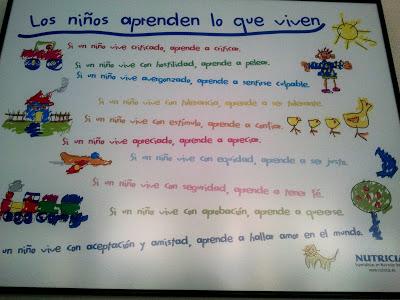 Los niños aprenden lo que viven
Si un niño vive criticado, aprende a criticar.
Si un niño vive con hostilidad, aprende a pelear.
Si un niño vive avergonzado, aprende a sentirse culpable.
Si un niño vive con tolerancia, aprende a ser tolerante.
Si un niño vive con estímulo, aprende a confiar.
Si un niño vive apreciado, aprende a apreciar.
Si un niño vive con equidad, aprende a ser justo.
Si un niño vive con seguridad, aprende a tener fé.
Si un niño vive con aprobación, aprende a quererse.
un niño vive con aceptación y amistad, aprende a hallar amor en el mundo.
NUTRICIA